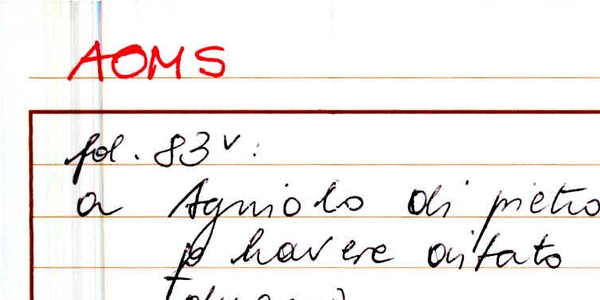 AOMS
fol. 83v:
a Agniolo di pietro
p havere aitato